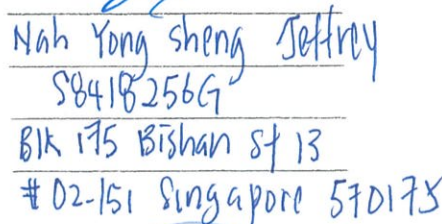 Nah Yong sheng Jeffrey
S8418256G
Blk 175 Bishan st 13
# 02-151 Singapore 570175